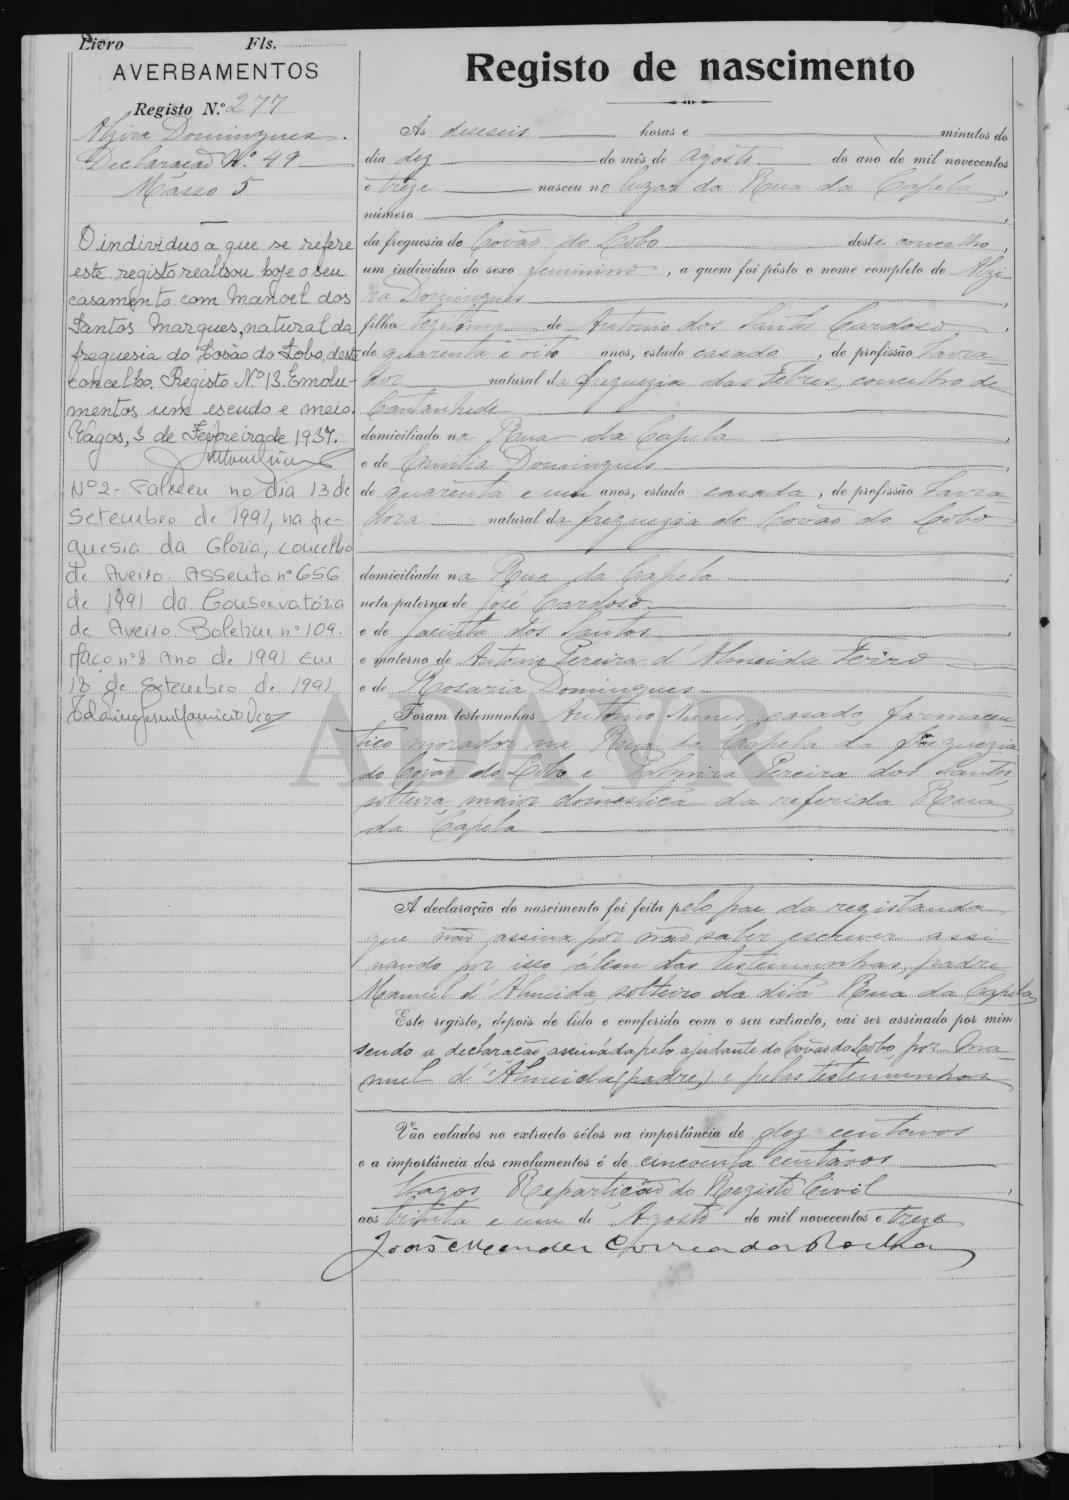 Livro Fls.
AVERBAMENTOS
Registo N.º 277
Alzira Domingues.
Declaração Nº 49
Masso 5
O individuo a que se refere
este registo realisou hoje o seu
casamento com Manoel dos
Santos Marques, natural da
freguesia do Covão do Lobo, deste
concelho. Registo Nº 13. Emolu-
mentos um escudo e meio.
Vagos, 3 de Fevereiro de 1937.
Nº 2 - Faleceu no dia 13 de
Setembro de 1991, na fre-
guesia da Glória, concelho
de Aveiro. Assento nº 656
de 1991 da Conservatória
de Aveiro Boletim nº 109.
Maço nº 8 Ano de 1991. Em
18 de Setembro de 1991
Registo de nascimento
Ás deseseis horas e minutos do
dia dez do mês de Agosto do ano de mil novecentos
e treze nasceu no lugar da Rua da Capela,
número
da freguesia do Covão do Lobo deste concelho,
um individuo do sexo feminino, a quem foi pôsto o nome completo de Alzi-
ra Domingues
filha legitima de Antonio dos Santos Cardoso,
de quarenta e oito anos, estado casado, de profissão Lavra
dor natural da freguezia das Febres, concelho de
Cantanhede
domiciliado na Rua da Capela
e de Emilia Domingues
de quarenta e um anos, estado casada, de profissão Lavra
dora natural da freguezia do Covão do Lobo
domiciliada na Rua da Capela
neta paterna de José Cardoso
e de Jacinta dos Santos
e materno de Antonio Pereira d'Almeida Ferro
e de Rosaria Domingues
Foram testemunhas Antonio Nunes, casado, farmaceu-
tico morador na Rua da Capela da freguezia
do Covão do Lobo e Palmira Pereira dos Santos,
solteira, maior domestica da referida Rua
da Capela
A declaração do nascimento foi feita pelo pae da registanda
que não assina por não saber escrever assi
nando por isso álem das testemunhas, padre
Manuel d'Almeida, solteiro da dita Rua da Capela
Este registo, depois de lido e conferido com o seu extracto, vai ser assinado por mim
sendo a declaração assinada pelo ajudante do Covão do Lobo por Ma-
nuel d'Almeida (padre,) e pelas testemunhas
Vão colados no extracto sêlos na importância de dez centavos
e a importância dos emolumentos é de cincoenta centavos
Vagos Repartição do Registo Civil
aos trinta e um de Agosto de mil novecentos e treze
João Mendes Correia da Rocha
ADAVR